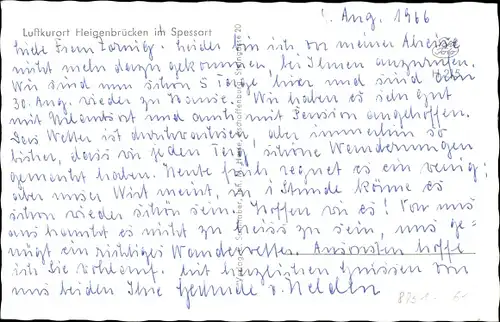 Luftkurort Heigenbrücken im Spessart
Aug. 1966
Liebe Frau leider bin ich vor meiner Abreise
nicht mehr dazu gekommen, bei Ihnen anzurufen.
Wir sind nun schon 5 Tage hier und sind am
30. Aug. wieder zu Hause. Wir haben es sehr gut
mit Urlaubsort und auch mit Pension angetroffen.
Das Wetter ist durchwachsen, aber immerhin so
bisher, dass wir jeden Tag schöne Wanderungen
gemacht haben. Heute früh regnet es ein wenig;
aber unser Wirt meint, in 1 Stunde könne es
schon wieder schön sein. Hoffen wir es! Von uns
aus braucht es nicht zu heiss zu sein, uns ge-
nügt ein richtiges Wanderwetter. Ansonsten hoffe
ich Sie wohlauf. Mit herzlichen Grüssen von
uns beiden Ihre Gertrude v. Nelden